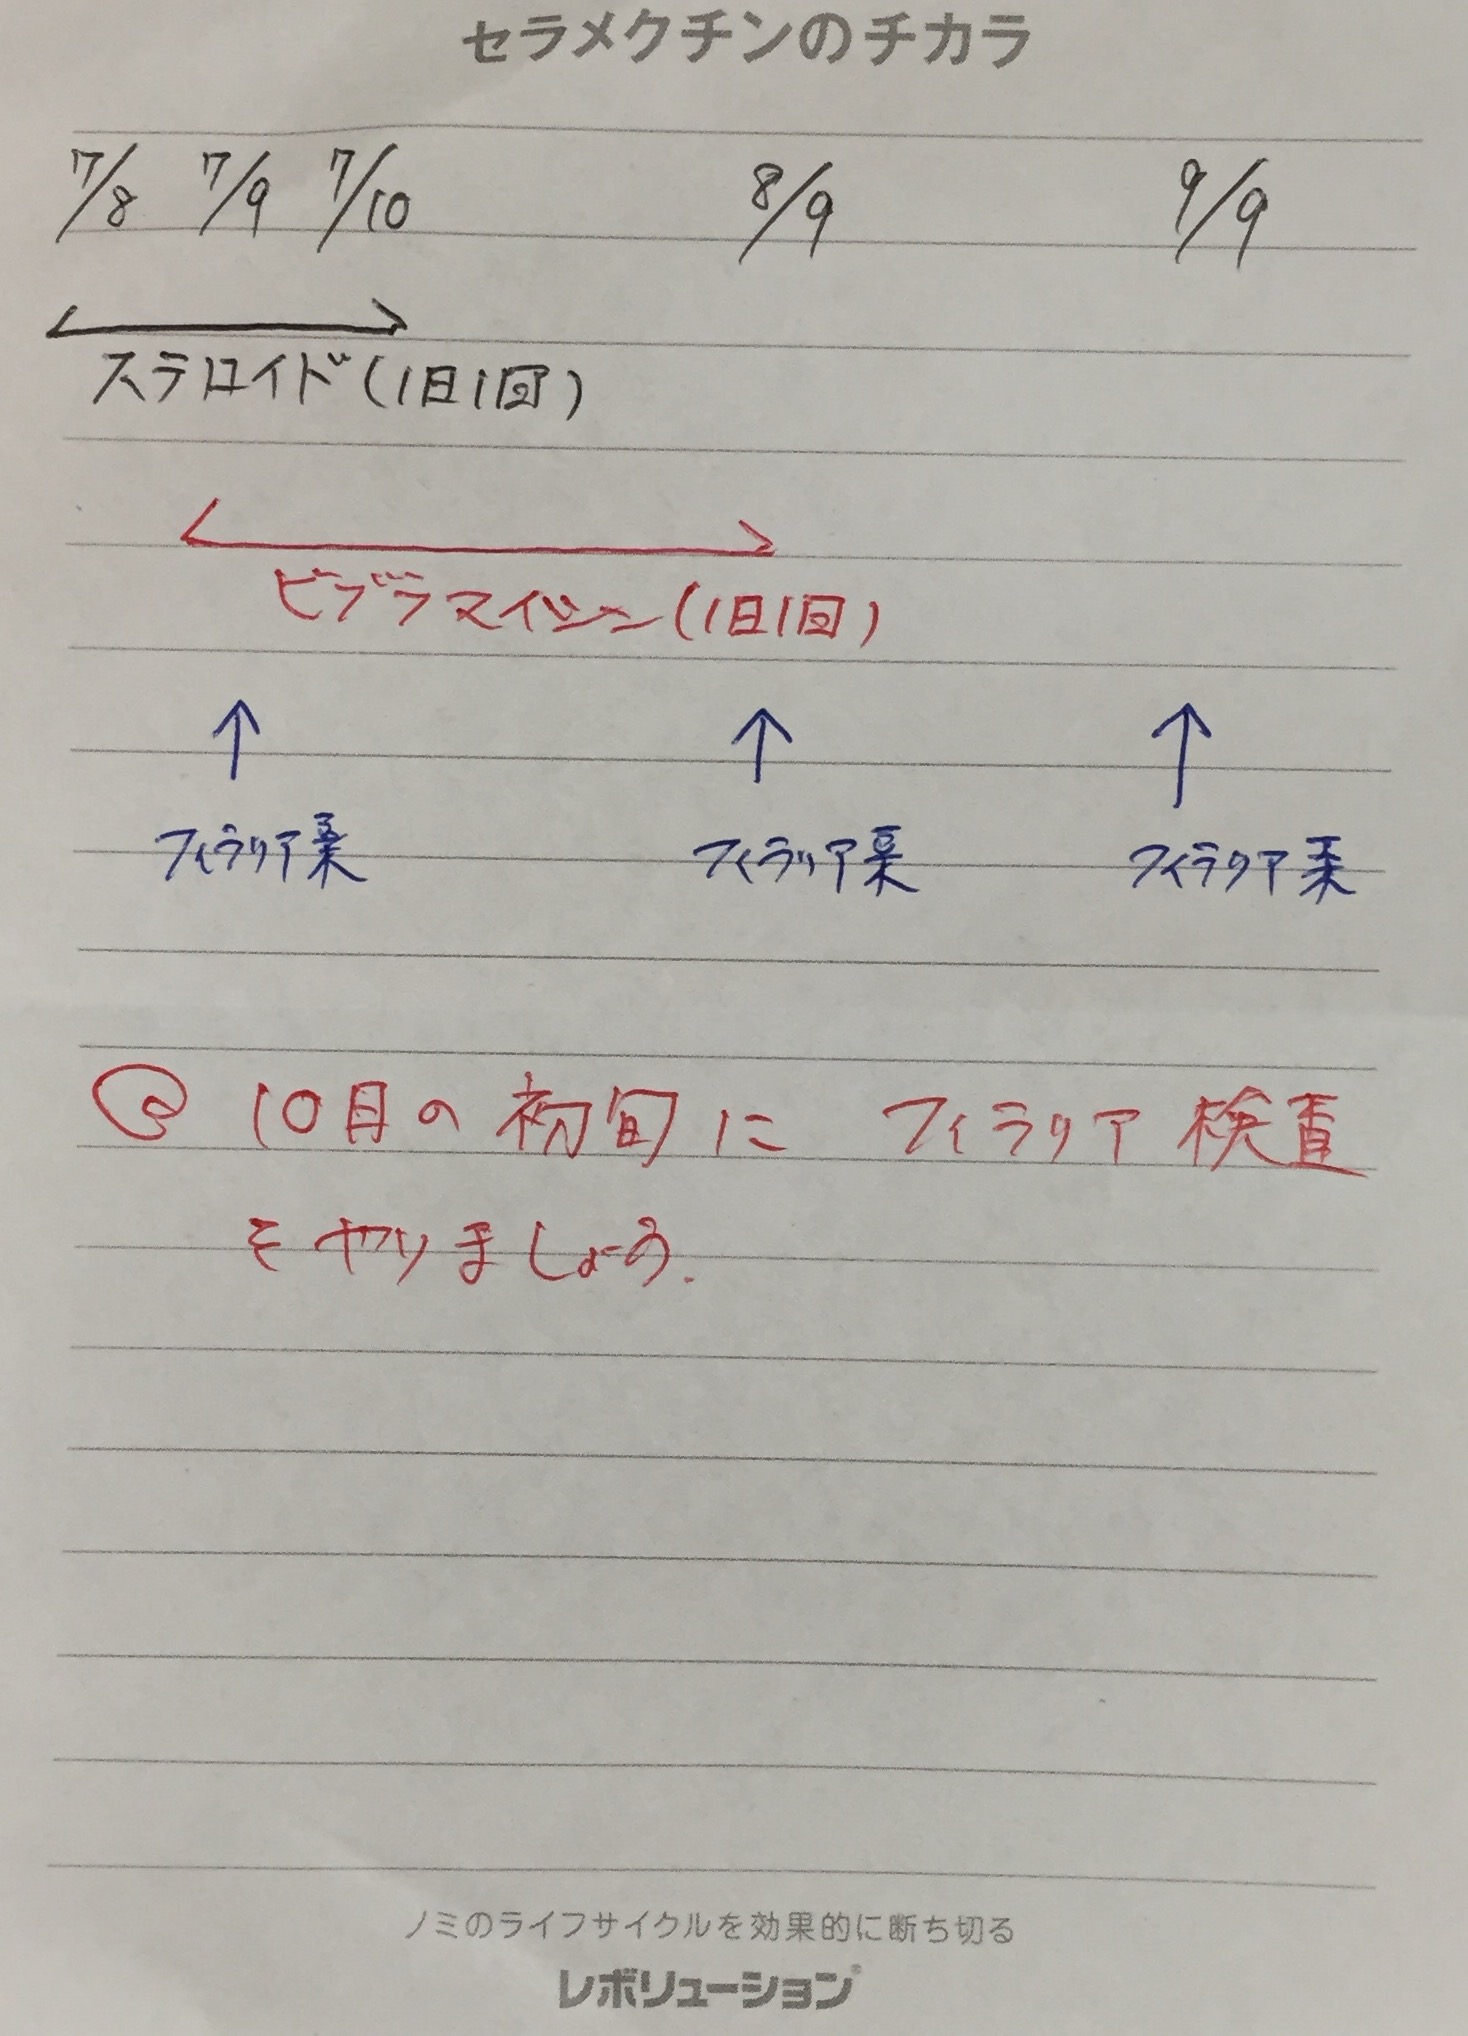 セラメクチンのチカラ
7/8 7/9 7/10 8/9 9/9
ステロイド(1日1回)
ビブラマイシン(1日1回)
↑ ↑ ↑
フィラリア薬 フィラリア薬 フィラリア薬
10月の初旬に フィラリア検査
をやりましょう.
ノミのライフサイクルを効果的に断ち切る
レボリューション®